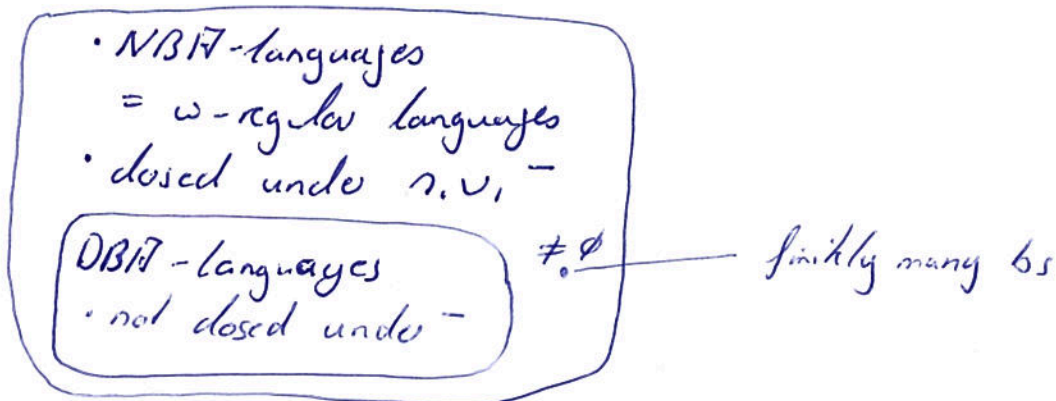 · NBA-languages
= ω-regular languages
· closed under ∩, ∪, ‾
DBA-languages
· not closed under ‾
≠ ∅
finitely many bs